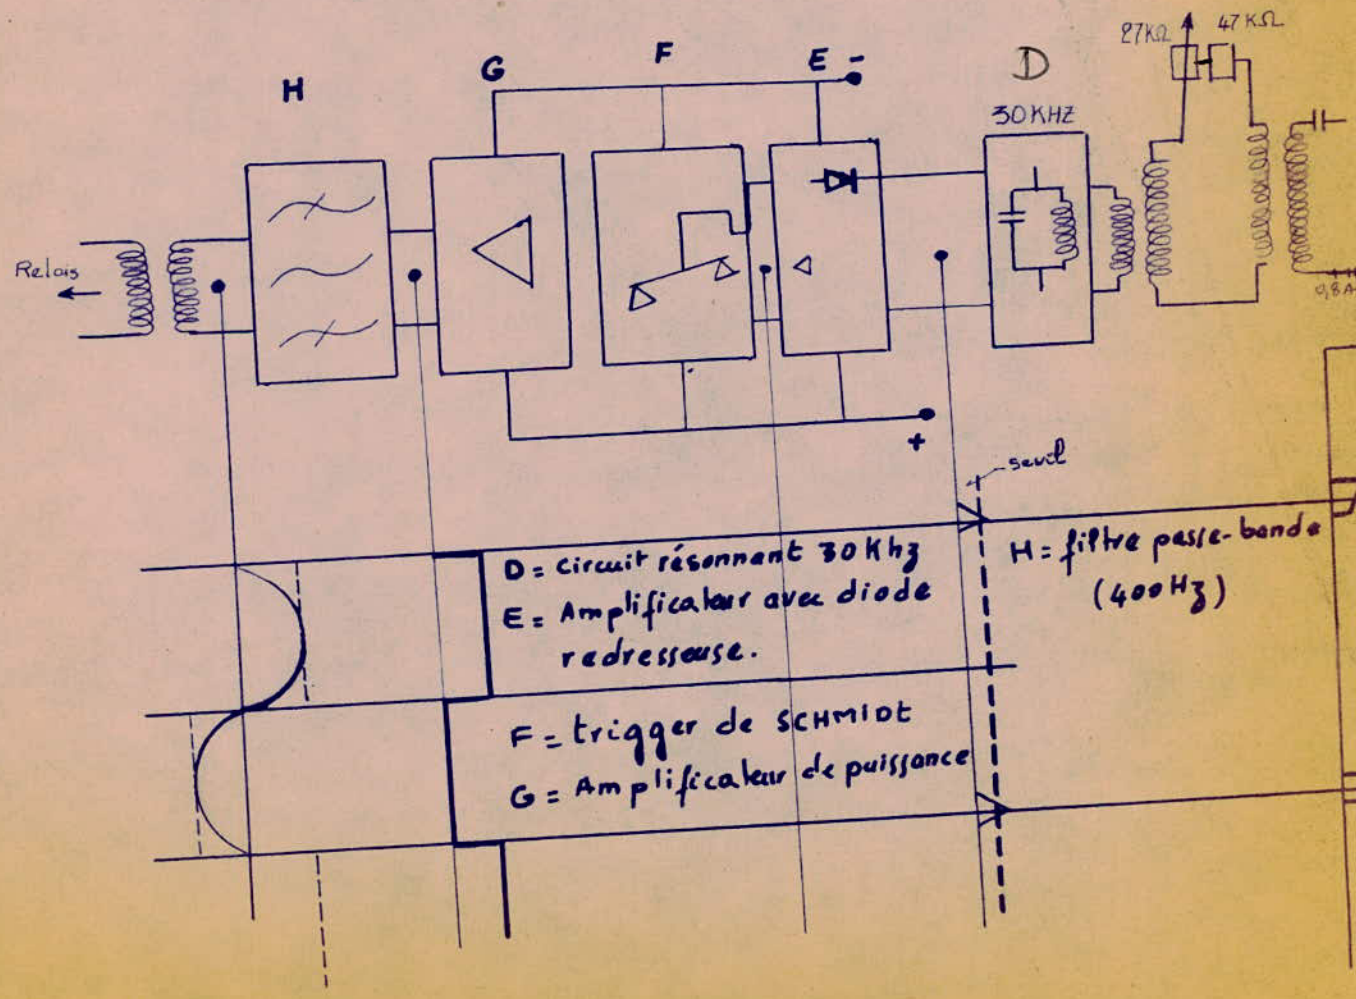 27KΩ 47KΩ
H G F E - D
30KHZ
Relais
0,8A
+
seuil
D = Circuit résonnant 30Khz
E = Amplificateur avec diode
redresseuse.
H = filtre passe-bande
(400Hz)
F = trigger de SCHMIDT
G = Amplificateur de puissance